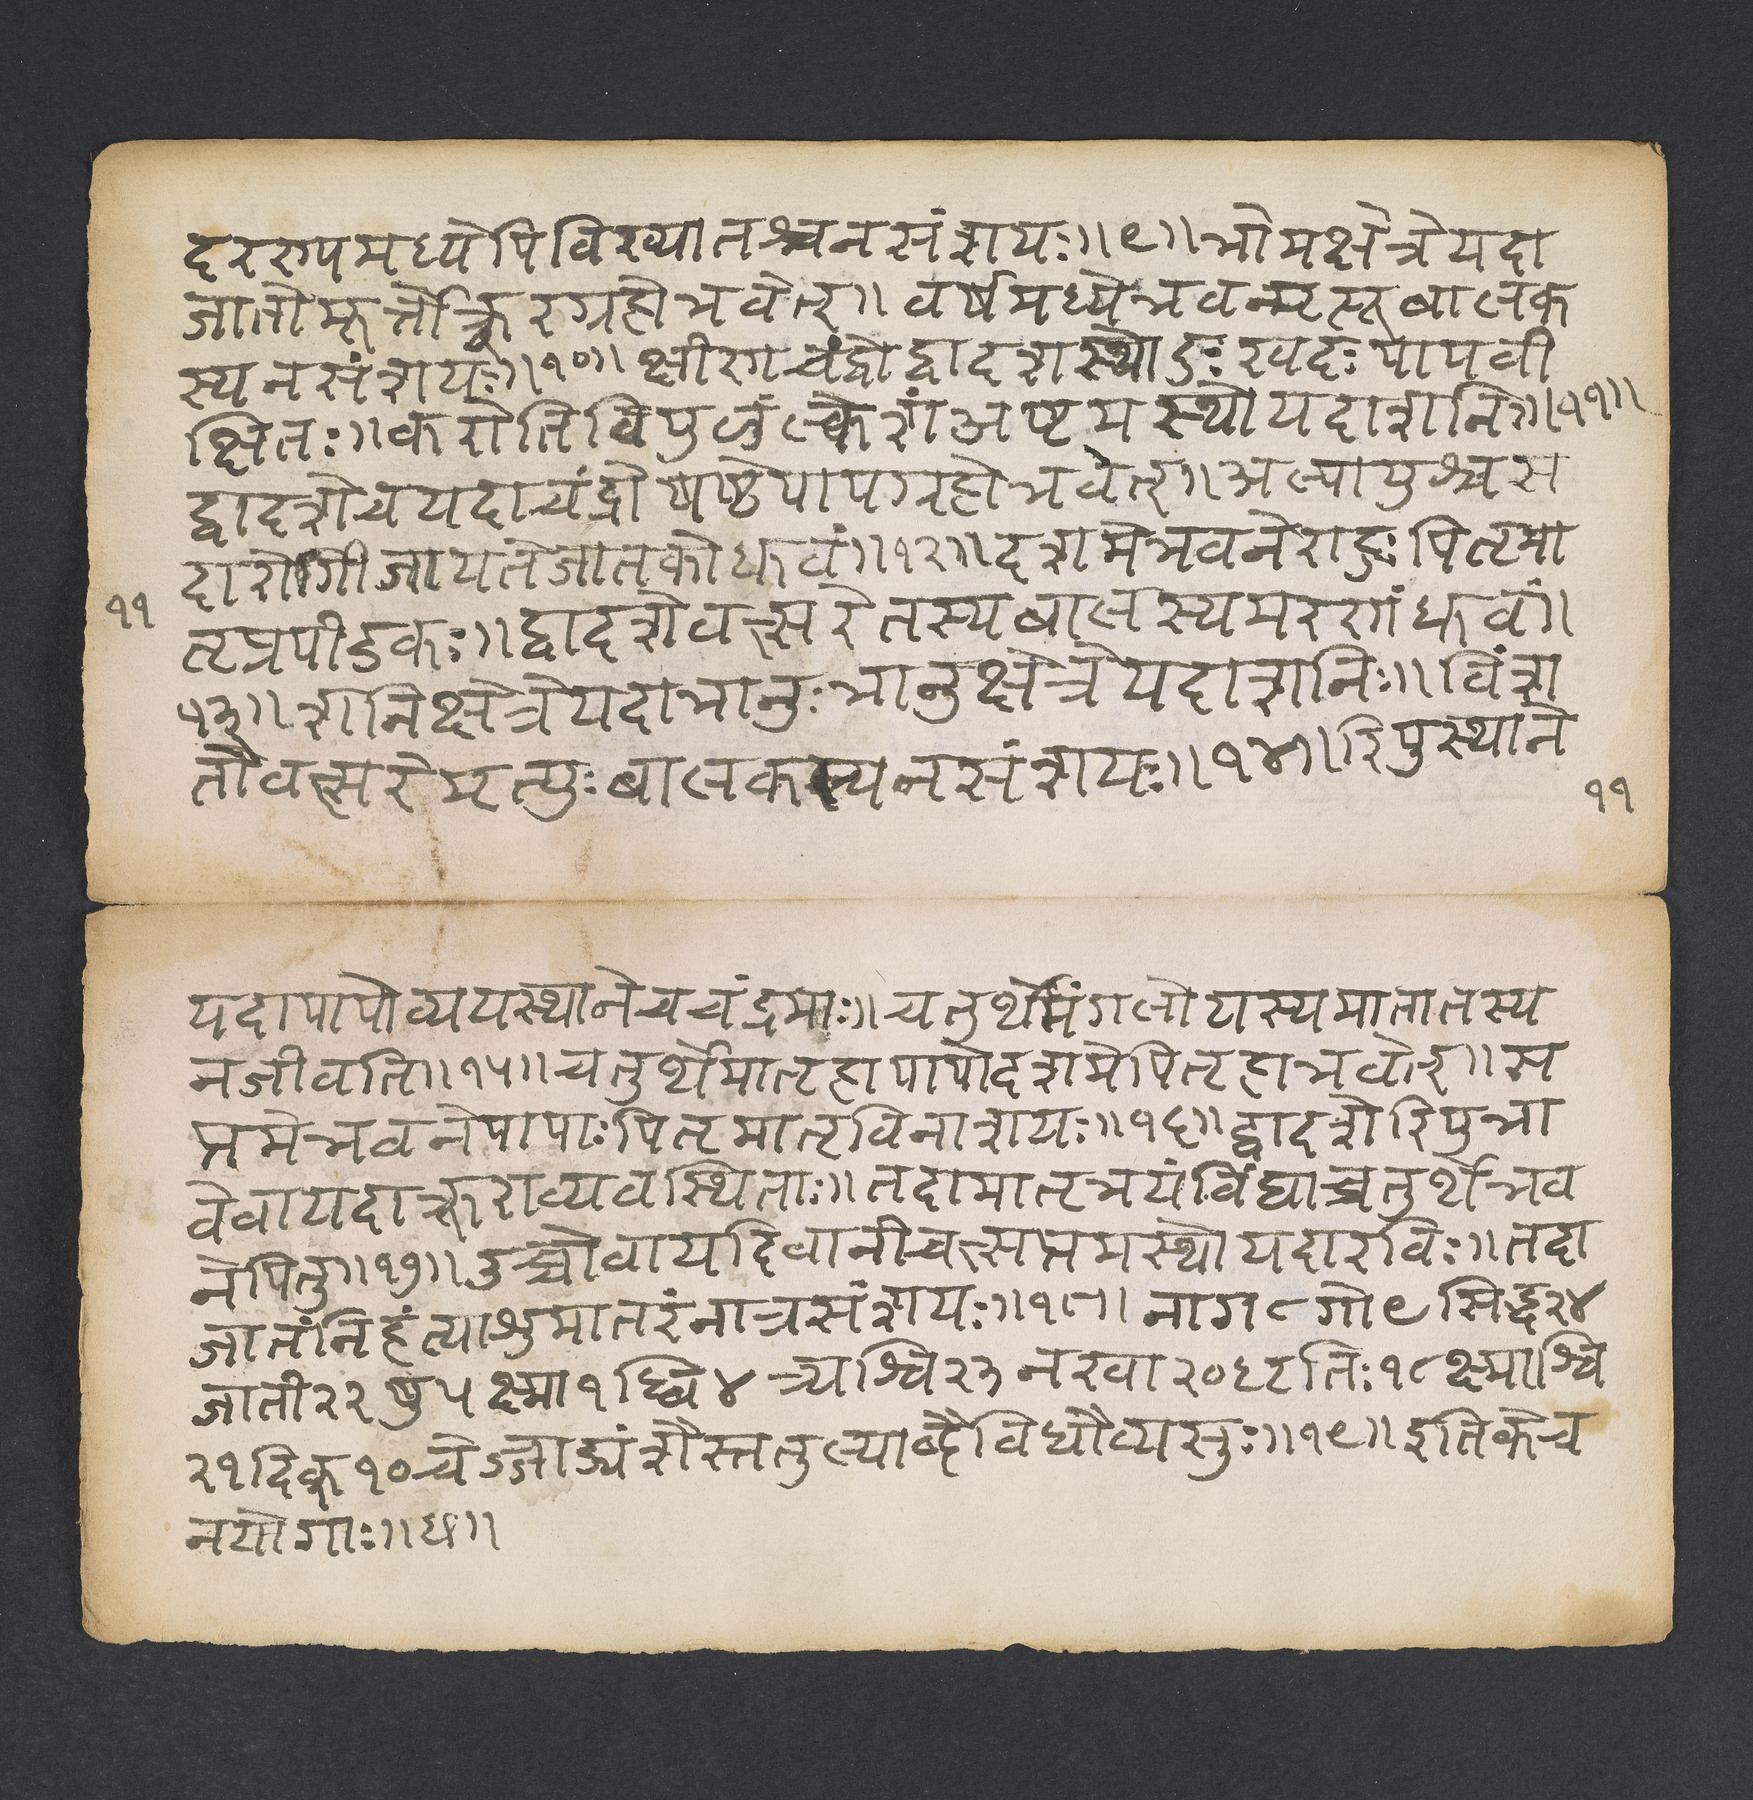 दररुपमध्येपिविख्यातश्चनसंशयः॥९॥भोमक्षेत्रेयदा
जातोमूर्त्तोक्रूरग्रहोभवेत्॥वर्षमध्येभवन्मृत्सूबालक
स्यनसंशयः॥१०॥क्षीरणचंद्रोद्वादशस्थोडःखदःपापवी
क्षितः॥करोतिविपुळंल्केशंअष्टमस्थोयदाशनि॥११॥
द्वादशेचयदाचंद्रोषष्ठेपापग्रहोभवेत्॥अल्पायुश्चस
दारोगीजायतेजातकोध्रुवं॥१२॥दशमेभवनेराहुःपितृमा
११
तृप्रपीडकः॥द्वादशेवत्सरेतस्यबालस्यमरणंध्रुवं॥
१३॥शनिक्षेत्रेयदाभानुःभानुक्षेत्रेयदाशनिः॥विंश
तौवत्सरेमृत्युःबालकस्यनसंशयः॥१४॥रिपुस्थाने
११
यदापापोव्ययस्थानेचचंद्रमाः॥चतुर्थेमंगलोयस्यमातातस्य
नजीवति॥१५॥चतुर्थेमातृहापापोदशमेपितृहाभवेत्॥स
प्तमेभवनेपापाःपितृमातृविनाशयः॥१६॥द्वादशेरिपुभा
वेवायदाक्रूराव्यवस्थिताः॥तदामातृभयंविंद्याच्चतुर्थेभव
नेपितु॥१७॥उच्चोवायदिवानीचत्सप्तमस्थोयदारविः॥तदा
जातंनिहंत्याश्रुमातरंनात्रसंशयः॥१८॥नाग८गो९सिद्ध२४
जाती२२षु५क्ष्मा१ब्धि४त्र्यश्वि२३नखा२०धृतिः१८क्ष्माश्वि
२१दिक्१०चेज्जाड्यंशैस्ततुल्याब्दैविधौव्यसुः॥१९॥इतिकेच
नयोगाः॥छ॥